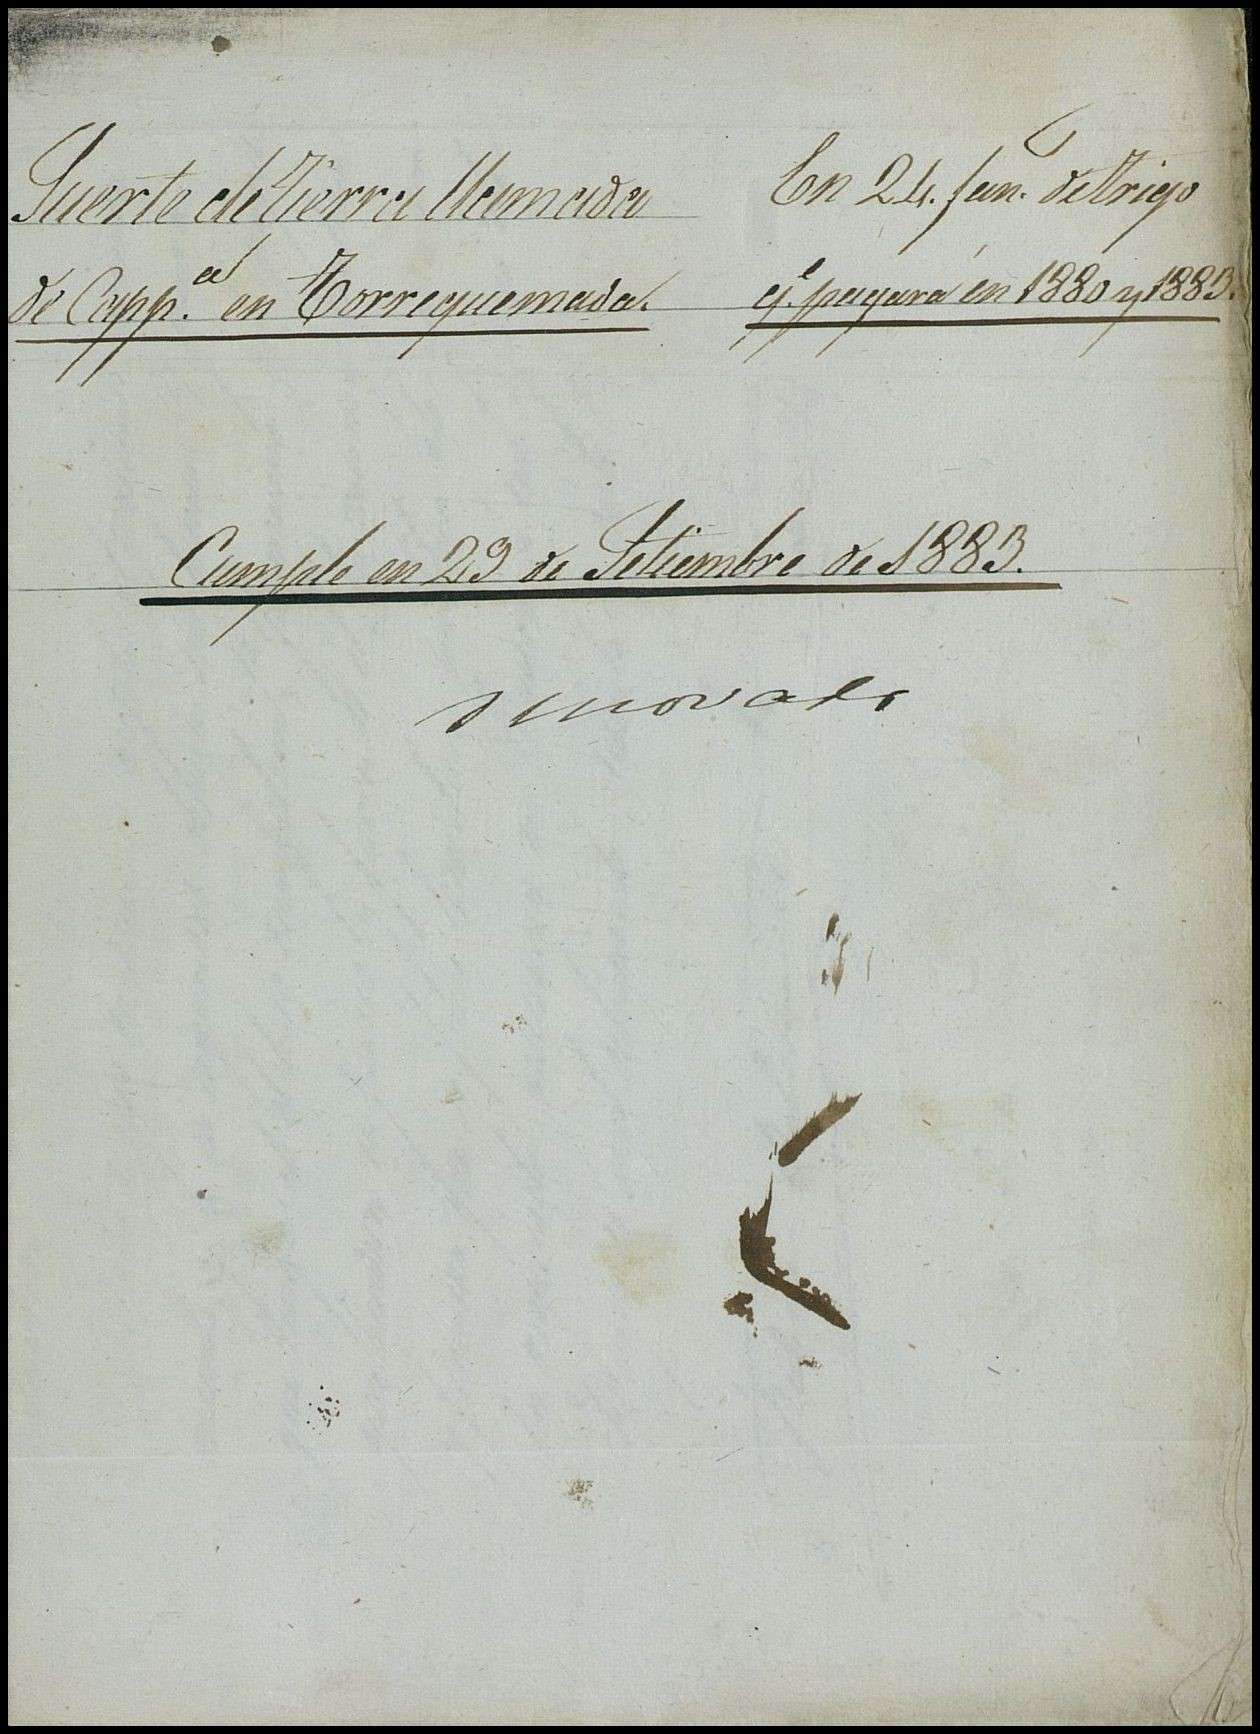 Suerte de Tierra llamada
de Capp.ª en Torrequemada.
En 24. fan.ˢ de Trigo
q.ᵉ pagará en 1880 y 1883.
Cumple en 29 de Setiembre de 1883.
renovado